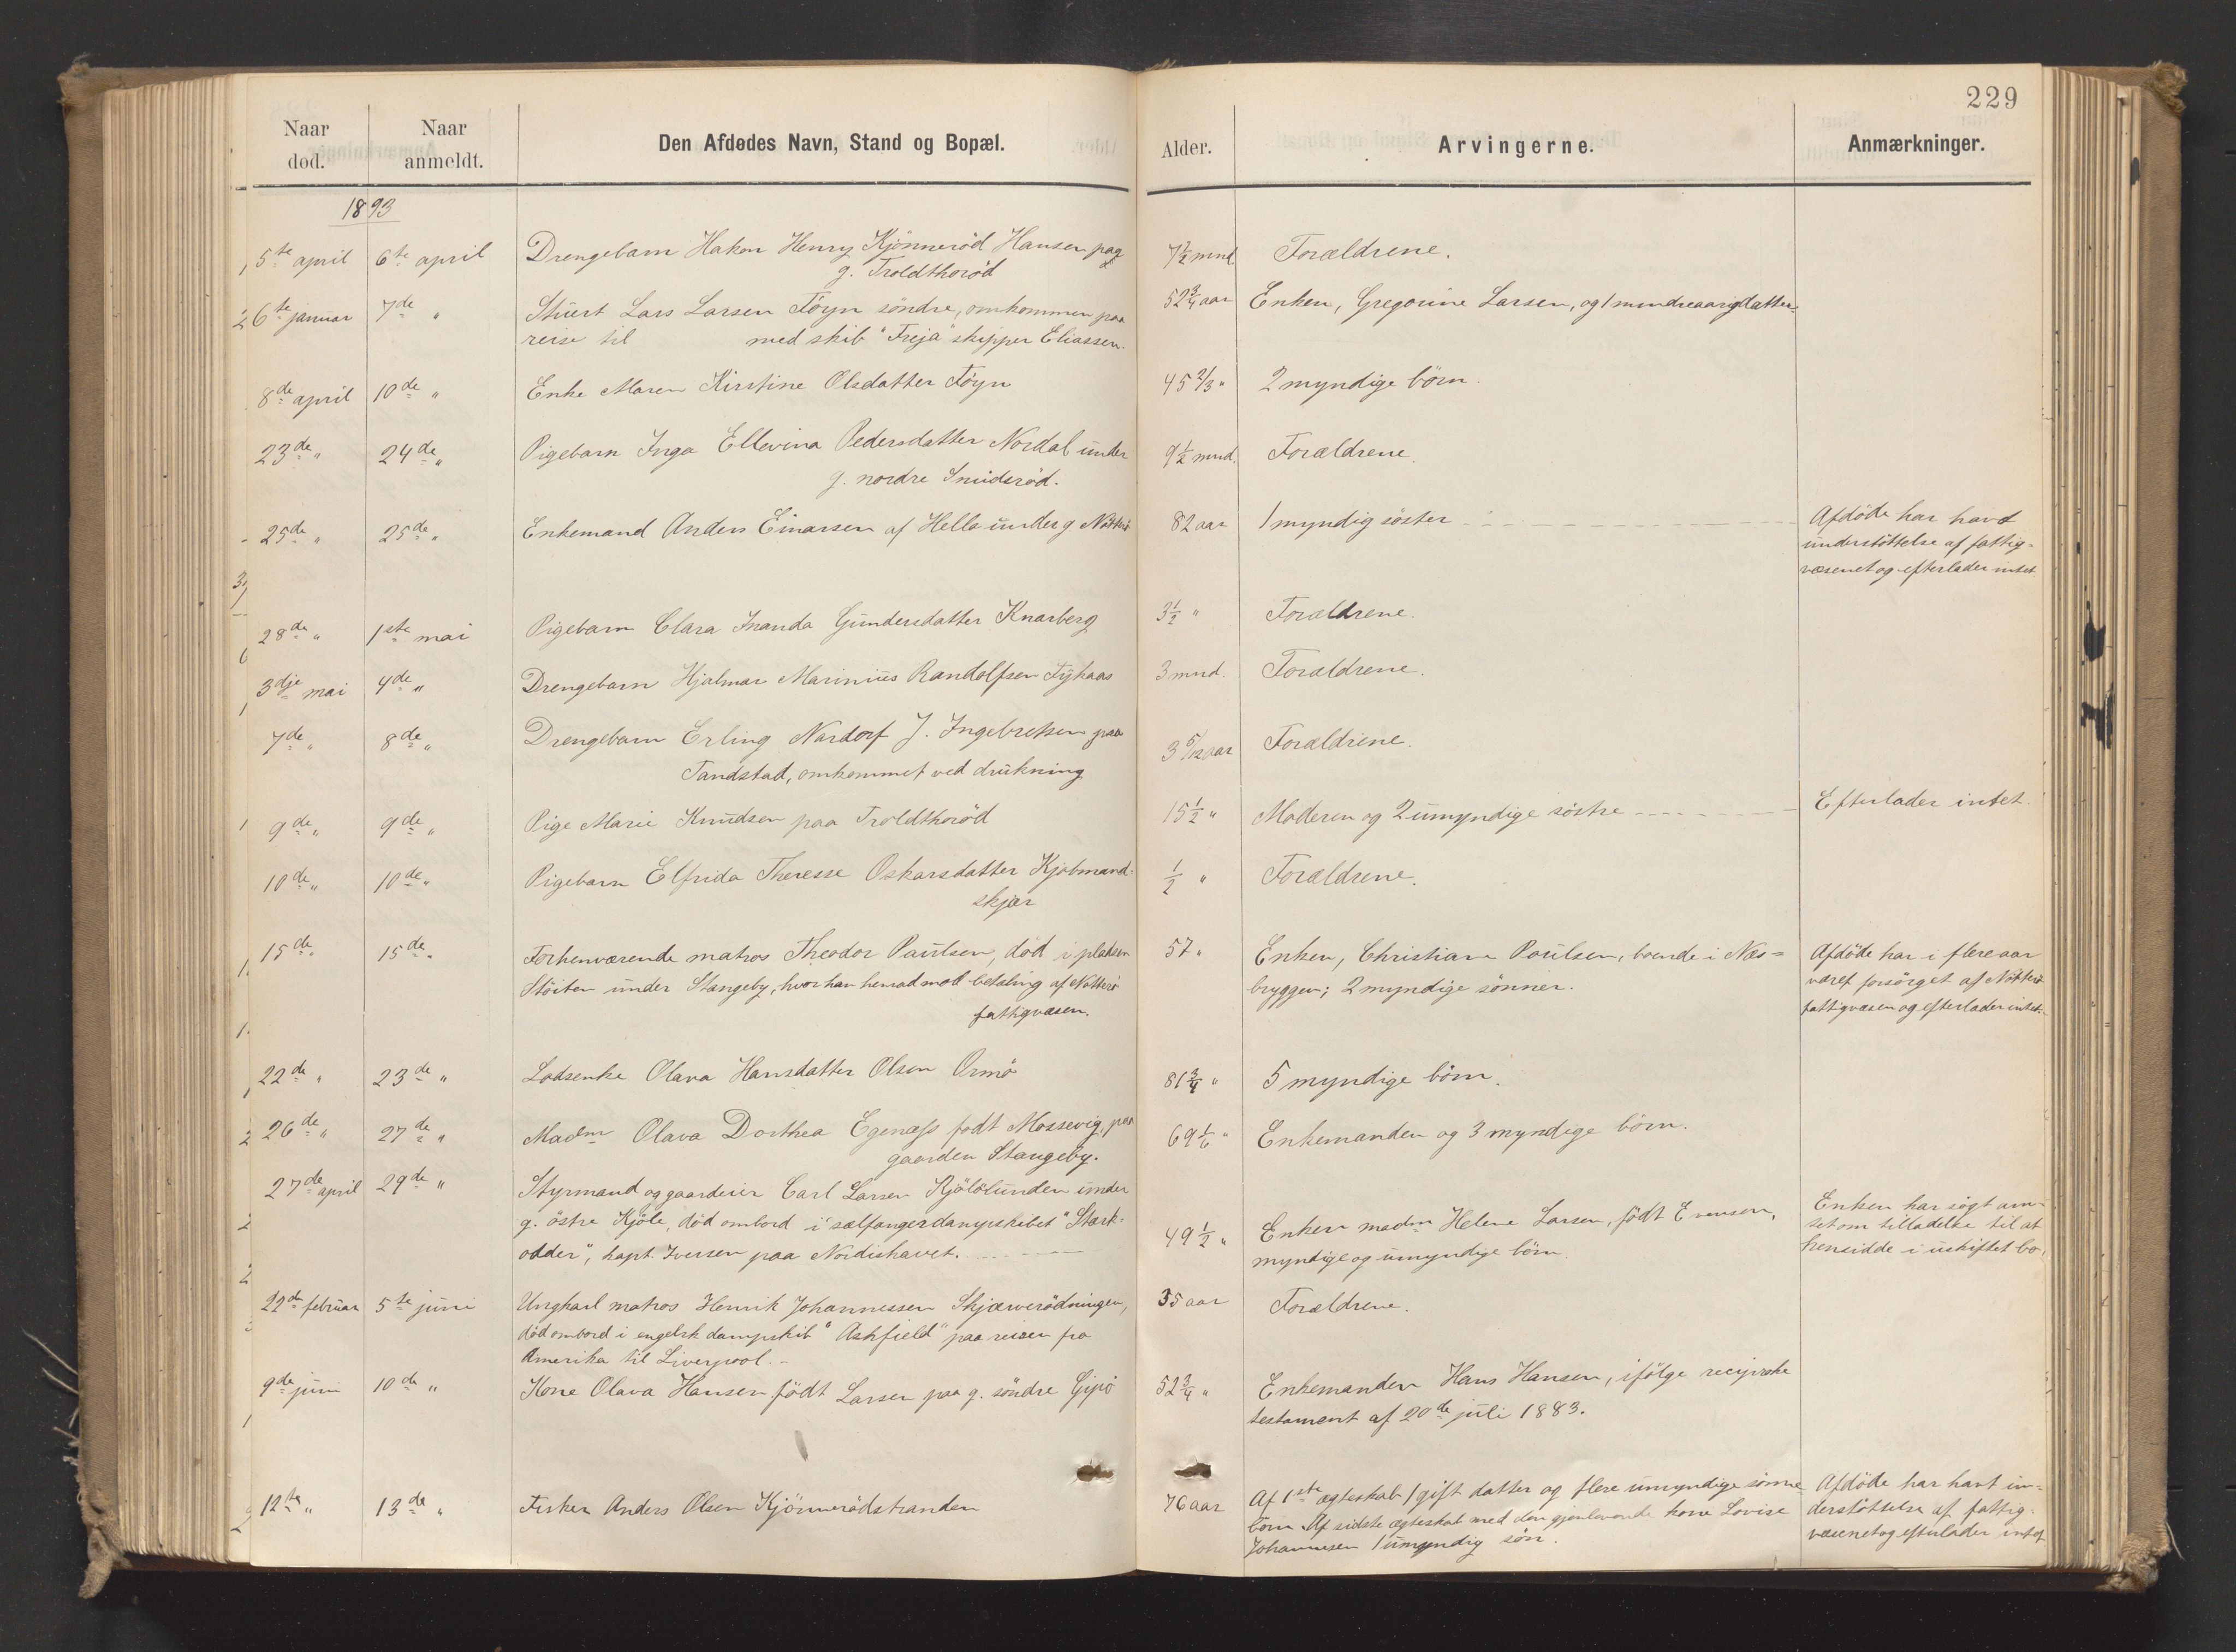 229
Naar død.
Naar anmeldt.
Den Afdødes Navn, Stand og Bopæl.
Alder.
Arvingerne.
Anmærkninger.
1893
5te april 6te april Drengebarn Hakon Henry Kjönneröd Hansen paa 7½ mnd. Forældrene.
g. Troldthoröd
6te januar 7de " Stuert Lars Larsen Töyn söndre, omkommen paa 52¾ aar Enken, Gregorine Larsen, og 1 mindreaarig datter.
reise til med skib "Freja" skipper Eliassen.
8de april 10de " Enke Maren Kirstine Olsdatter Föyn 45 2/3 " 2 myndige börn.
23de " 24de " Pigebarn Inga Ellevina Pedersdatter Nordal under 9½ mnd. Forældrene.
g. nordre Smideröd.
25de " 25de " Enkemand Anders Einarsen af Hella under g Nötterö 82 aar 1 myndig söster Afdöde har havt
understöttelse af fattig-
væsenet og efterlader intet.
28de " 1ste mai Pigebarn Clara Inanda Gundersdatter Knarberg 3½ " Forældrene.
3dje mai 4de " Drengebarn Hjalmar Marinius Randolfsen 3 mnd. Forældrene.
7de " 8de " Drengebarn Erling Nardorf J. Ingebretsen paa 3 5/12 aar Forældrene.
Tandstad, omkommet ved drukning
9de " 9de " Pige Marie Knudsen paa Troldthoröd 15½ " Moderen og 2 umyndige söstre Efterlader intet.
10de " 10de " Pigebarn Elfrida Theresse Oskarsdatter Kjöbmand- ½ " Forældrene.
skjær
15de " 15de " Forhenværende matros Theodor Paulsen, död i pladsen 57 " Enken, Christiane Paulsen, boende i Næs- Afdöde har i flere aar
Stöiten under Stangeby, hvor han hensad mod betaling af Nötterö bryggen; 2 myndige sönner. været forsörget af Nötterö
fattigvæsen. fattigvæsen og efterlader intet.
22de " 23de " Lodsenke Olava Hansdatter Olsen Ormö 81¾ " 5 myndige börn.
26de " 27de " Madm Olava Dorthea Egenæss födt Mossevig, paa 69 1/6 " Enkemanden og 3 myndige börn.
gaarden Stangeby.
27de april 29de " Styrmand og gaardeier Carl Larsen Kjölölunden under
g. östre Kjöle, död ombord i sælfangerdampskibet "Stærk- 49½ " Enken madm Helene Larsen, födt Evensen, Enken har sögt am-
odder", kapt. Iversen paa Nordishavet. myndige og umyndige börn. tet om tilladelse til at
hensidde i uskiftet bo.
22de februar 5te juni Ungkarl matros Henrik Johannessen Skjærverödningen, 35 aar Forældrene.
död ombord i engelsk dampskib "Ashfield" paa reisen fra
Amerika til Liverpool.
9de juni 10de " Kone Olava Hansen födt Larsen paa g. söndre Gipö 52¾ " Enkemanden Hans Hansen, ifölge reciproke
testament af 20de juli 1883.
12te " 13de " Fisker Anders Olsen Kjönnerödstranden 76 aar Af 1ste ægteskab 1 gift datter og flere umyndige sönne- Afdöde har havt un-
börn. Af sidste ægteskab med den gjenlevende kone Lovise derstöttelse af fattig-
Johannesen 1 umyndig sön. væsenet og efterlader intet